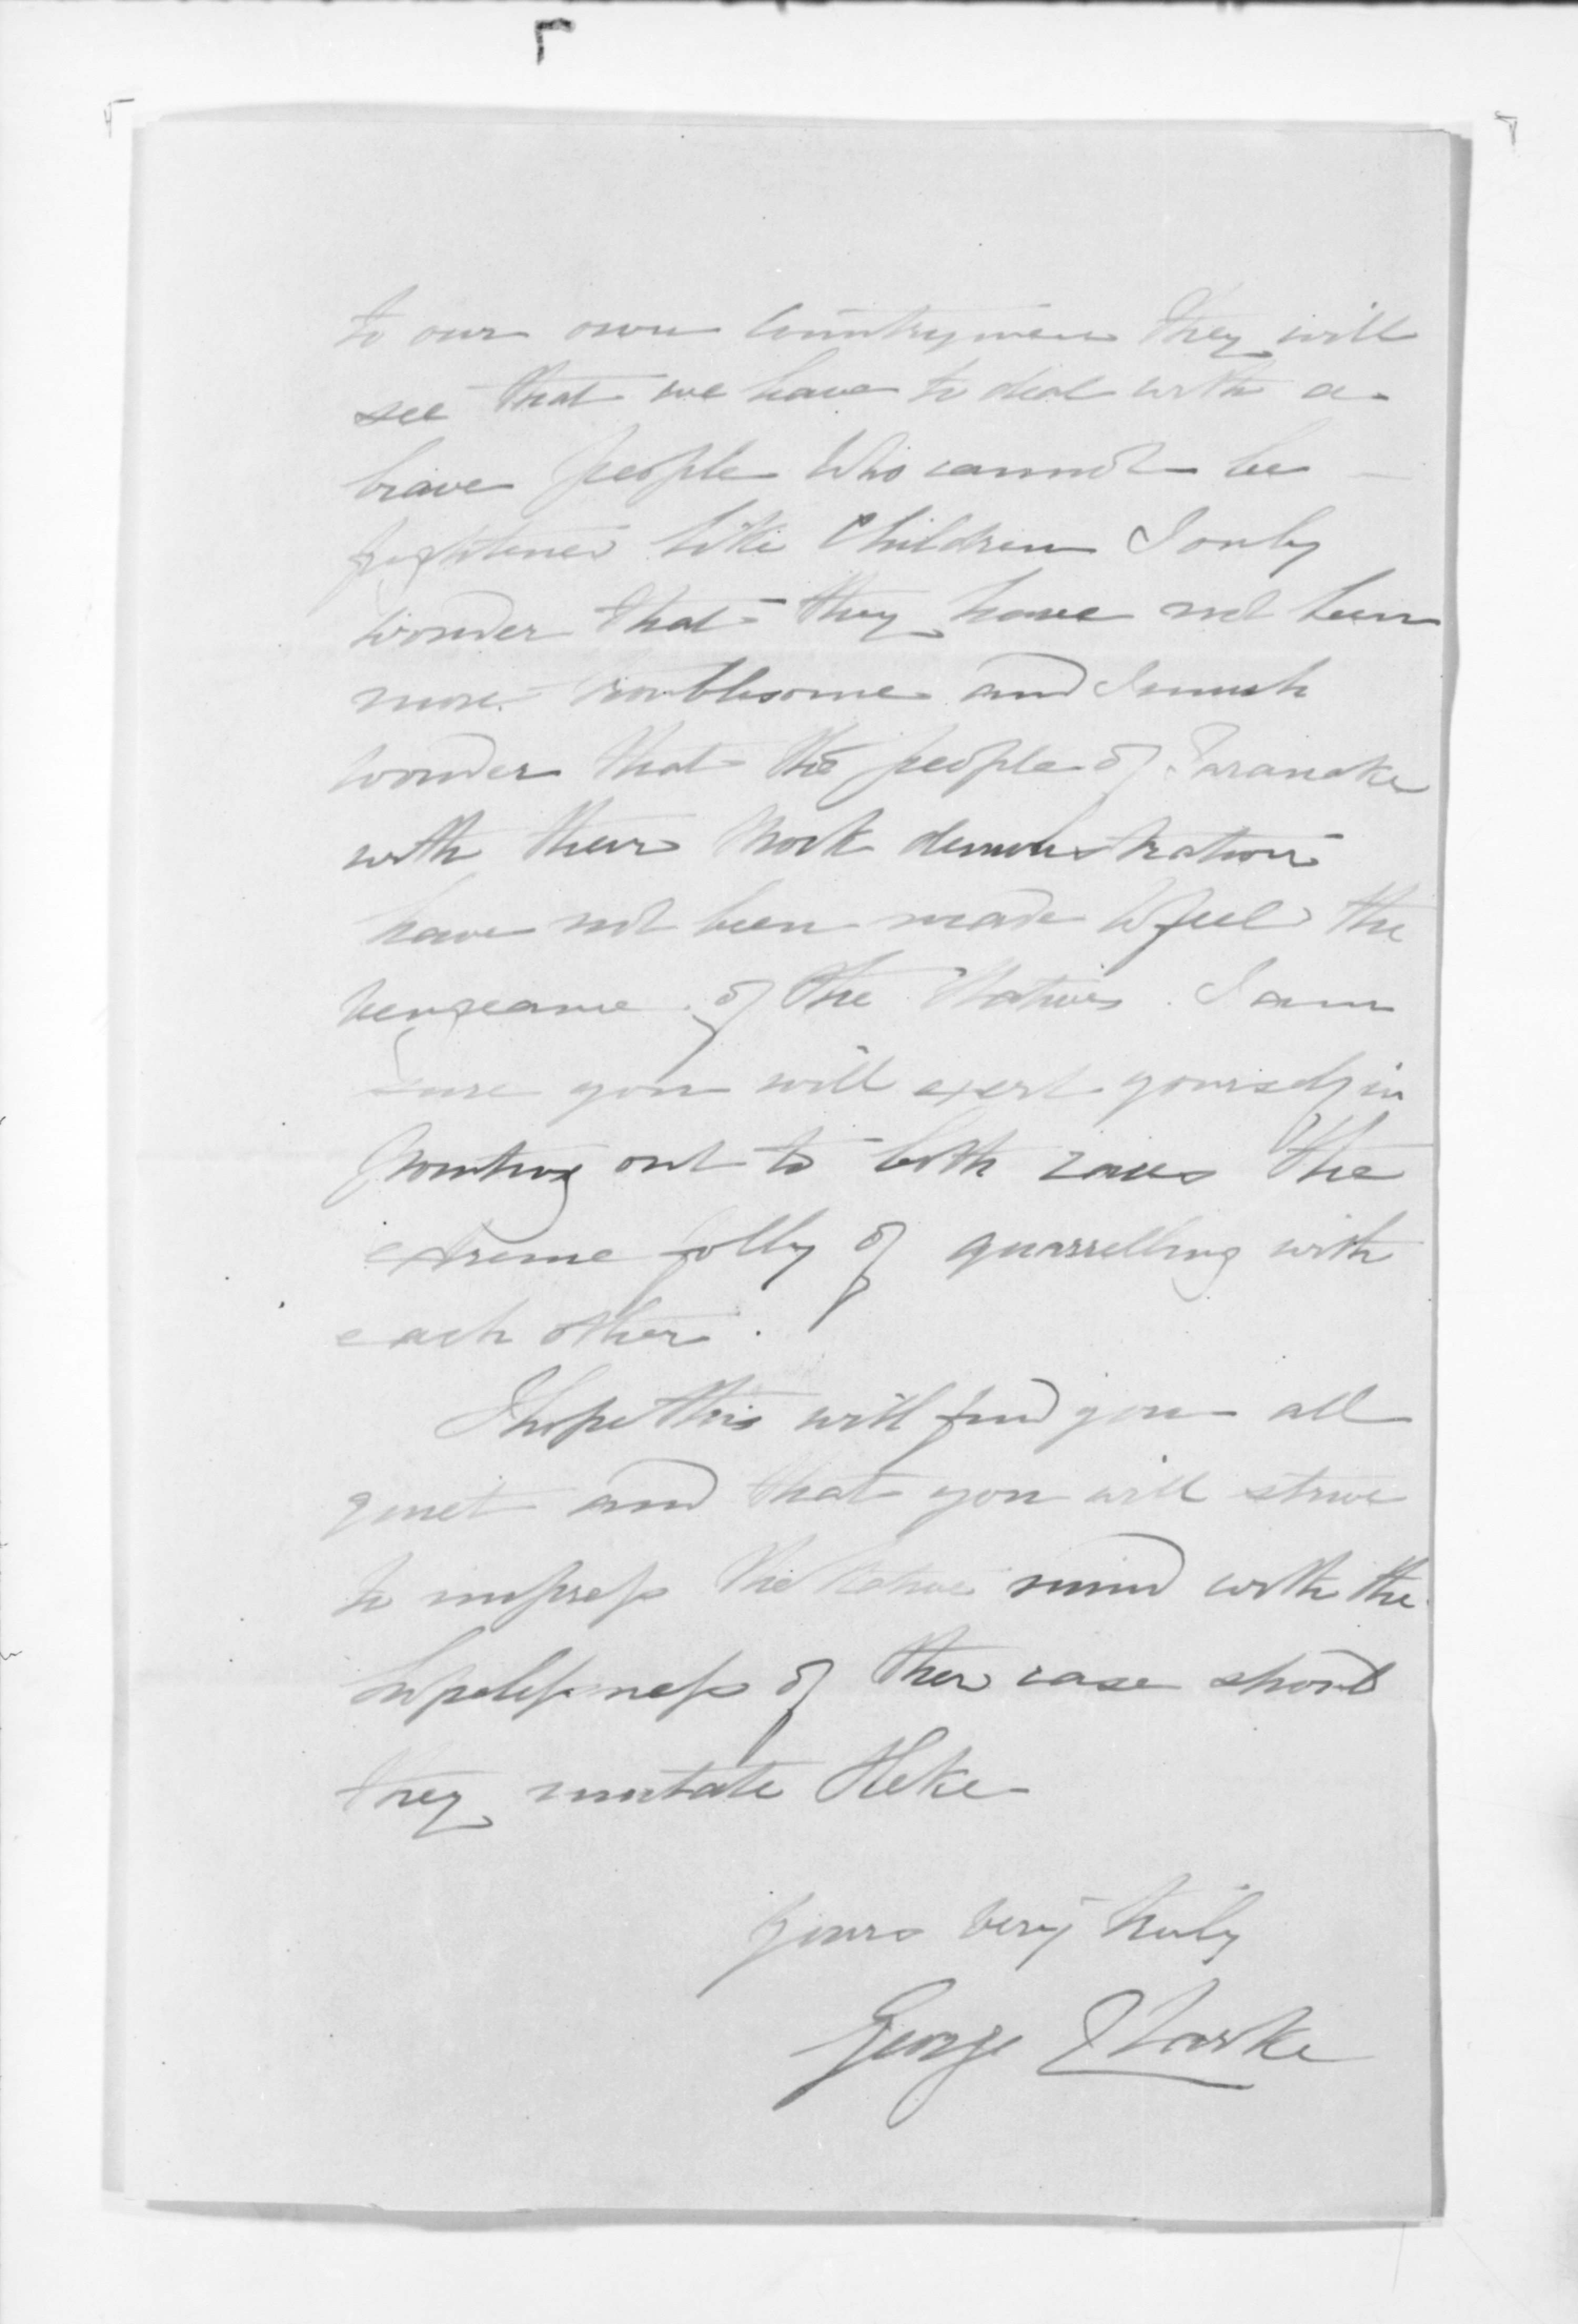 to our own Countrymen they will
see that we have to deal with a
brave people who cannot be
frightened like Children I only
wonder that they have not been
more troublesome and I much
wonder that the people of Taranake
with their Mock demonstrations
have not been made to feel the
vengeance of the Natives. I am
sure you will exert yourself in
pointing out to both races the
extreme folly of quarrelling with
each other.
I hope this will find you all
quiet and that you will strive
to impress the Native mind with the
hopelessness of their case should
they imitate Heke
Yours very truly
George Clarke